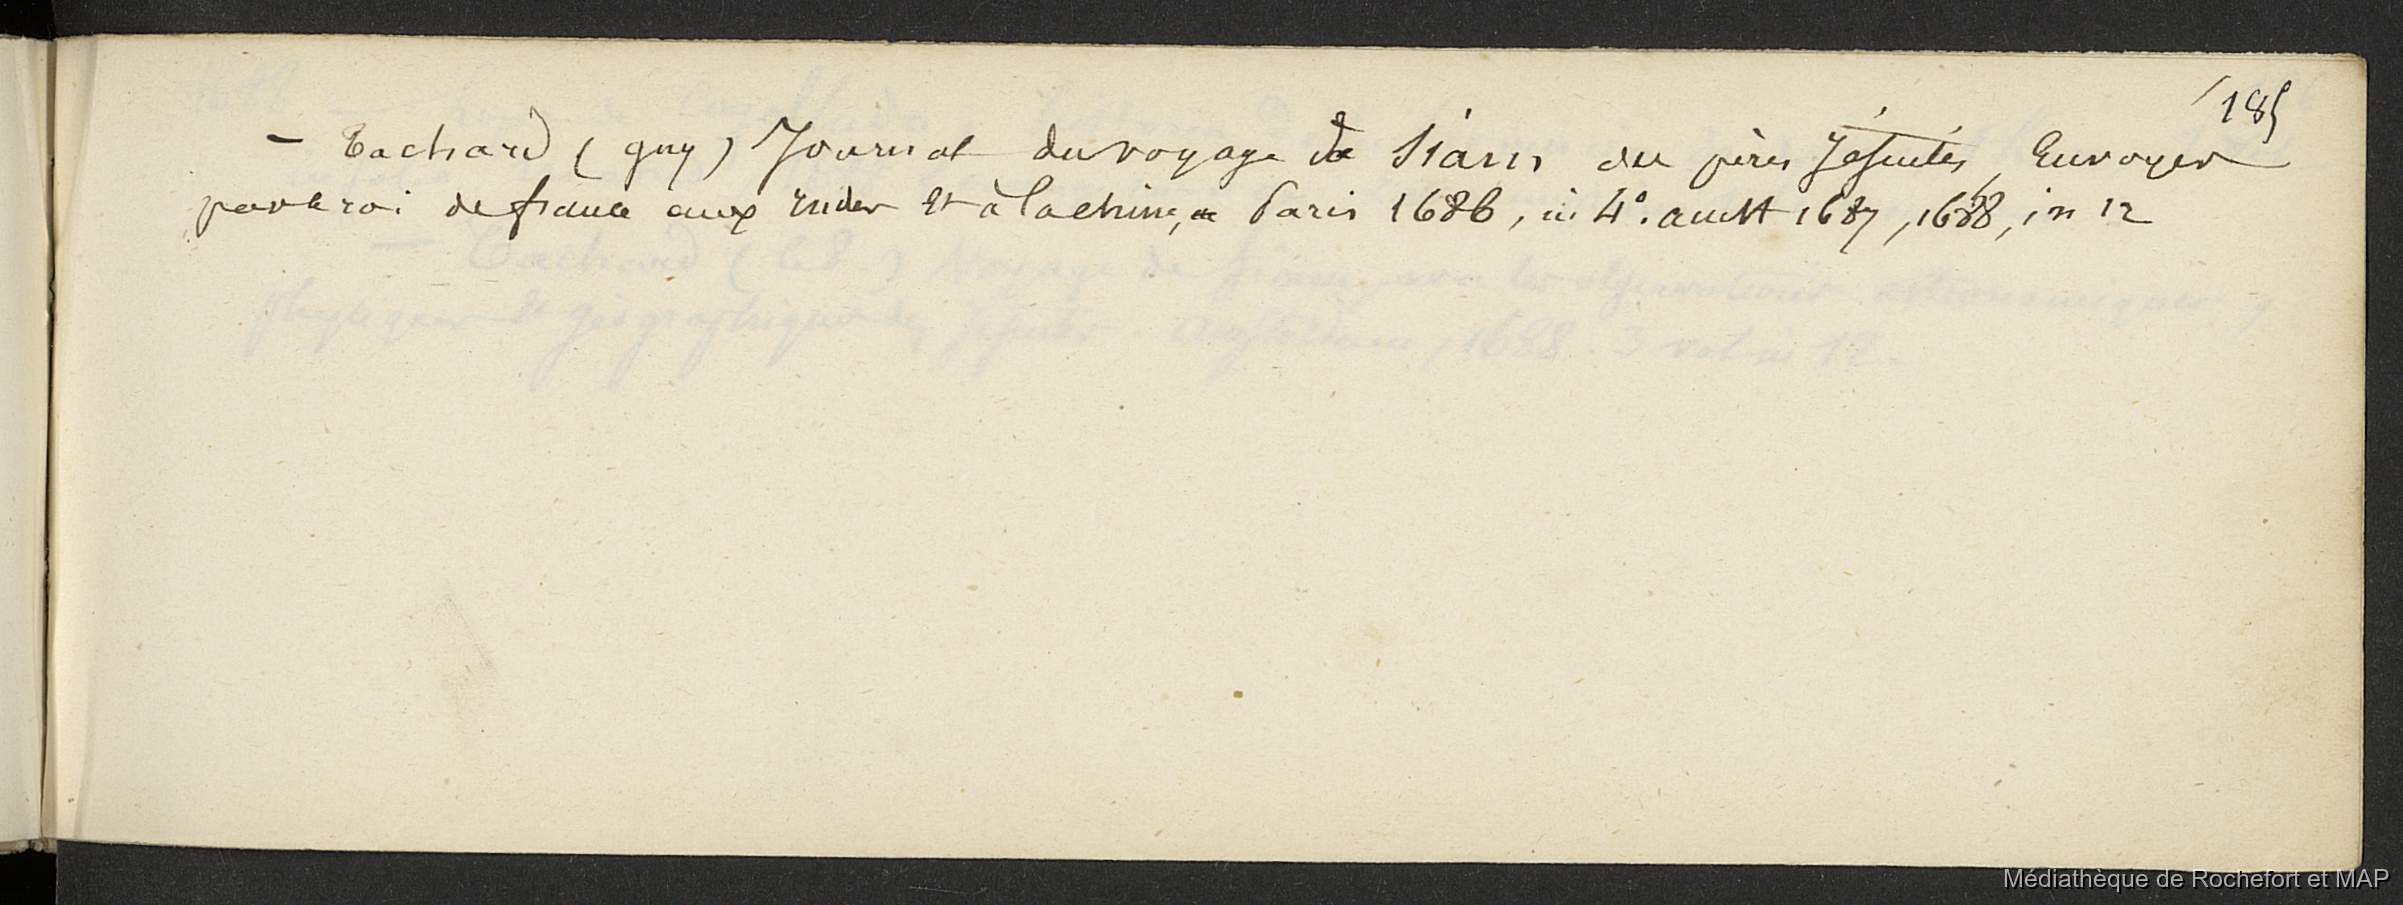 185
- Tachard (guy) Journal du voyage de Siam des pères Jésuites Envoyer
par le roi de france aux indes Et à la chine, Paris 1686, in 4°. amst 1687, 1688, in 12
Médiathèque de Rochefort et MAP